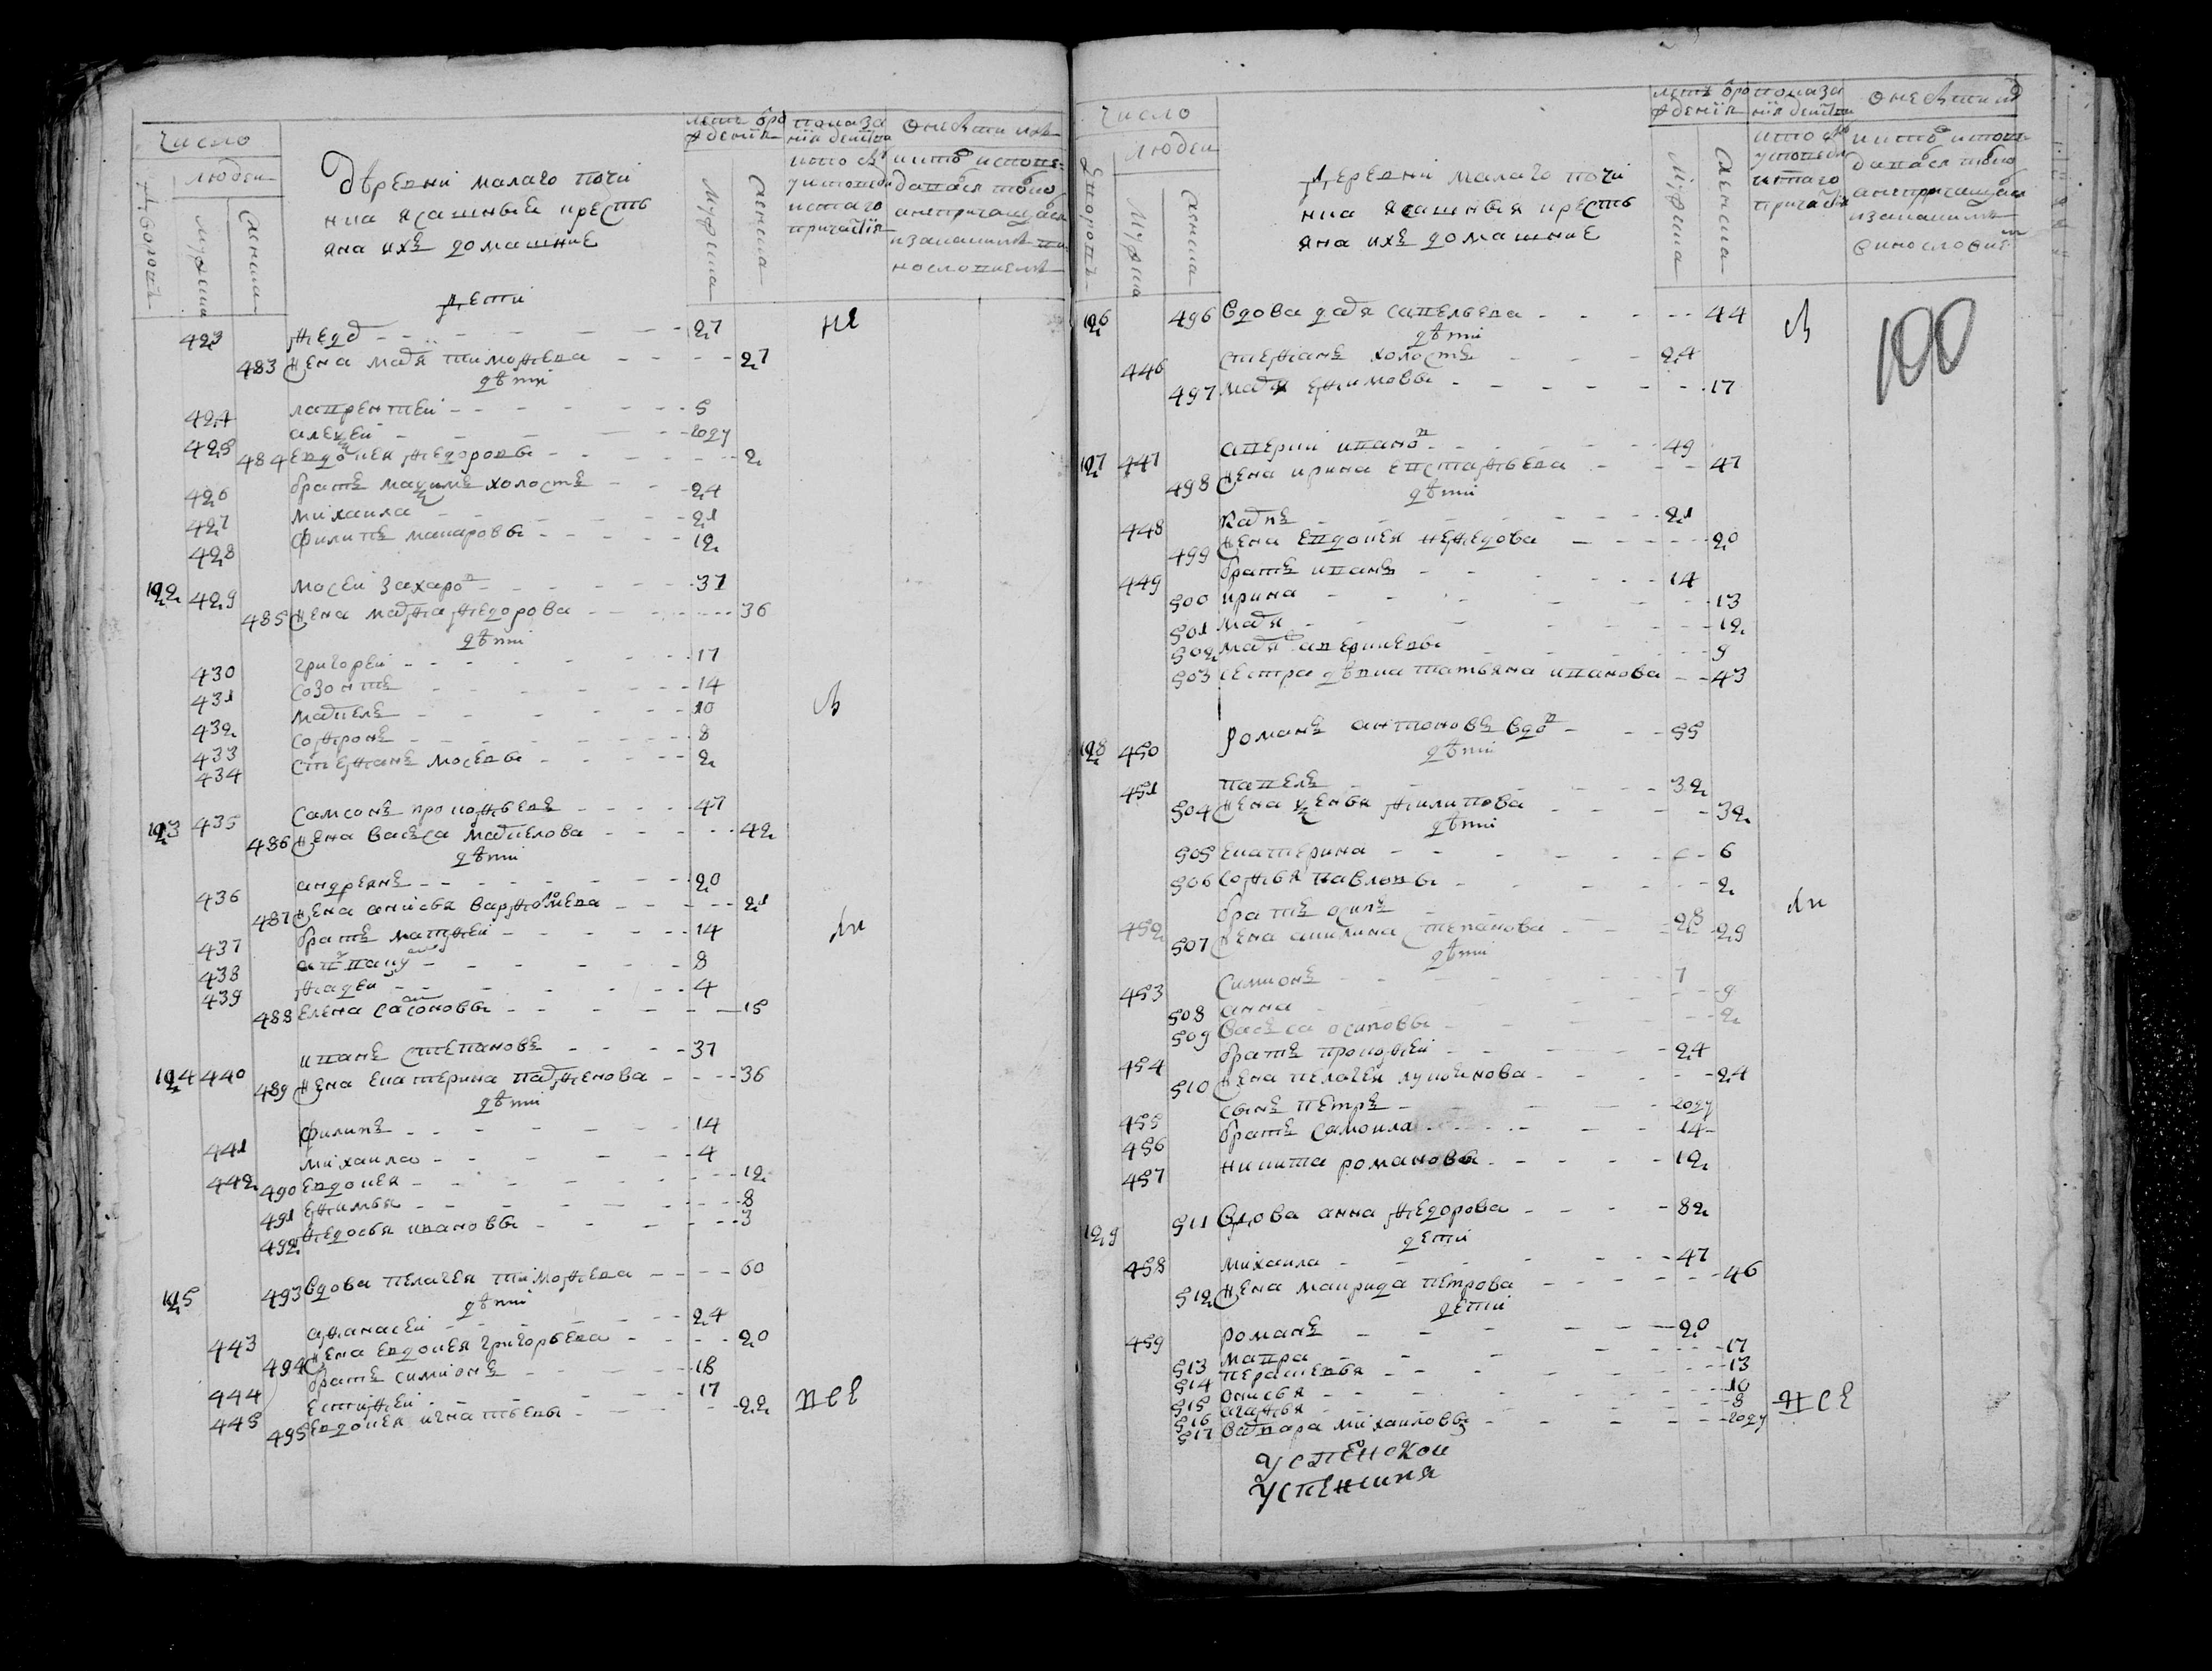 число
людеи
дворовъ
мужска
женска
Дѣревни малаго почи
нка ясашныя кресть
яна ихъ домашние
летъ ѿ ро
жденія
мужска
женска
показа
нія действа
кто былъ
у исповеди
и стаго
причастія
дети
423 Федоръ 27 не
483 жена марья тимофеева 27
дѣти
424 лаврентеи 5
425 алеѯеи году
484 евдокея федоровы 2
426 братъ маѯимъ холостъ 24
427 михаила 21
428 филипъ макаровы 12
122 429 мосеи захаровъ 37
485 жена марфа федорова 36
дѣти
430 григореи 17
431 созонтъ 14
432 маркелъ 10 бы
433 софронъ 8
434 стефанъ мосеевы 2
123 435 самсонъ прокофьевъ 47
486 жена васса маркелова 42
дѣти
436 андреянъ 20
487 жена анисья варфоломеева 21
437 братъ матфеи 14 ли
438 аввакумъ 8
439 фадеи 4
488 елена самсоновы 15
124 440 иванъ степановъ 37
489 жена екатерина парфенова 36
дѣти
441 филипъ 14
442 михаило 4
490 евдокея 12
491 ефимья 8
492 федосья ивановы 3
125 493 вдова пелагея тимофеева 60
дѣти
443 афанасеи 24
494 жена евдокея григорьева 20
444 братъ симионъ 18
445 естифеи 17
495 евдокея игнатьевы 22 все
число
людеи
дворовъ
мужска
женска
Деревни малаго почи
нка ясашныя кресть
яна ихъ домашние
летъ ѿ ро
жденія
мужска
женска
показа
нія действа
100
126 496 вдова дарья савельева 44 бы
дѣти
446 стефанъ холостъ 24
497 марья ефимовы 17
127 447 аверкии ивановъ 49
498 жена ирина евстафьева 47
дѣти
448 карпъ 21
499 жена евдокея нефедова 20
449 братъ иванъ 14
500 ирина 13
501 марья 12
502 марья аверкиевы 9
503 сестра дѣвка татьяна иванова 43
128 450 романъ антоновъ вдовъ 55
дѣти
451 павелъ 32
504 жена ѯенья филипова 32
дѣти
505 екатерина 6
506 софья павловы 2
452 братъ осипъ 28 ли
507 жена акилина степанова 29
дѣти
453 симионъ 7
508 анна 9
509 васса осиповы 2
454 братъ прокофеи 24
510 жена пелагея лукоянова 24
455 сынъ петръ году
456 братъ самоила 14
457 никита романовы 12
129 511 вдова анна федорова 82
дети
458 михаила 47
512 жена маврида петрова 46
дети
459 романъ 20
513 мавра 17
514 перасковья 13
515 анисья 10
516 агафья 8
517 варвара михаиловы году все
успенскои
успенския